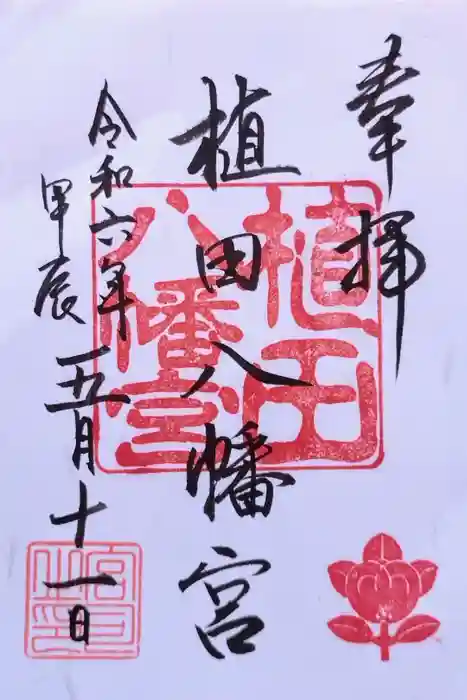 奉拝
植田八幡宮
令和六年
甲辰
五月十一日
植田八幡宮